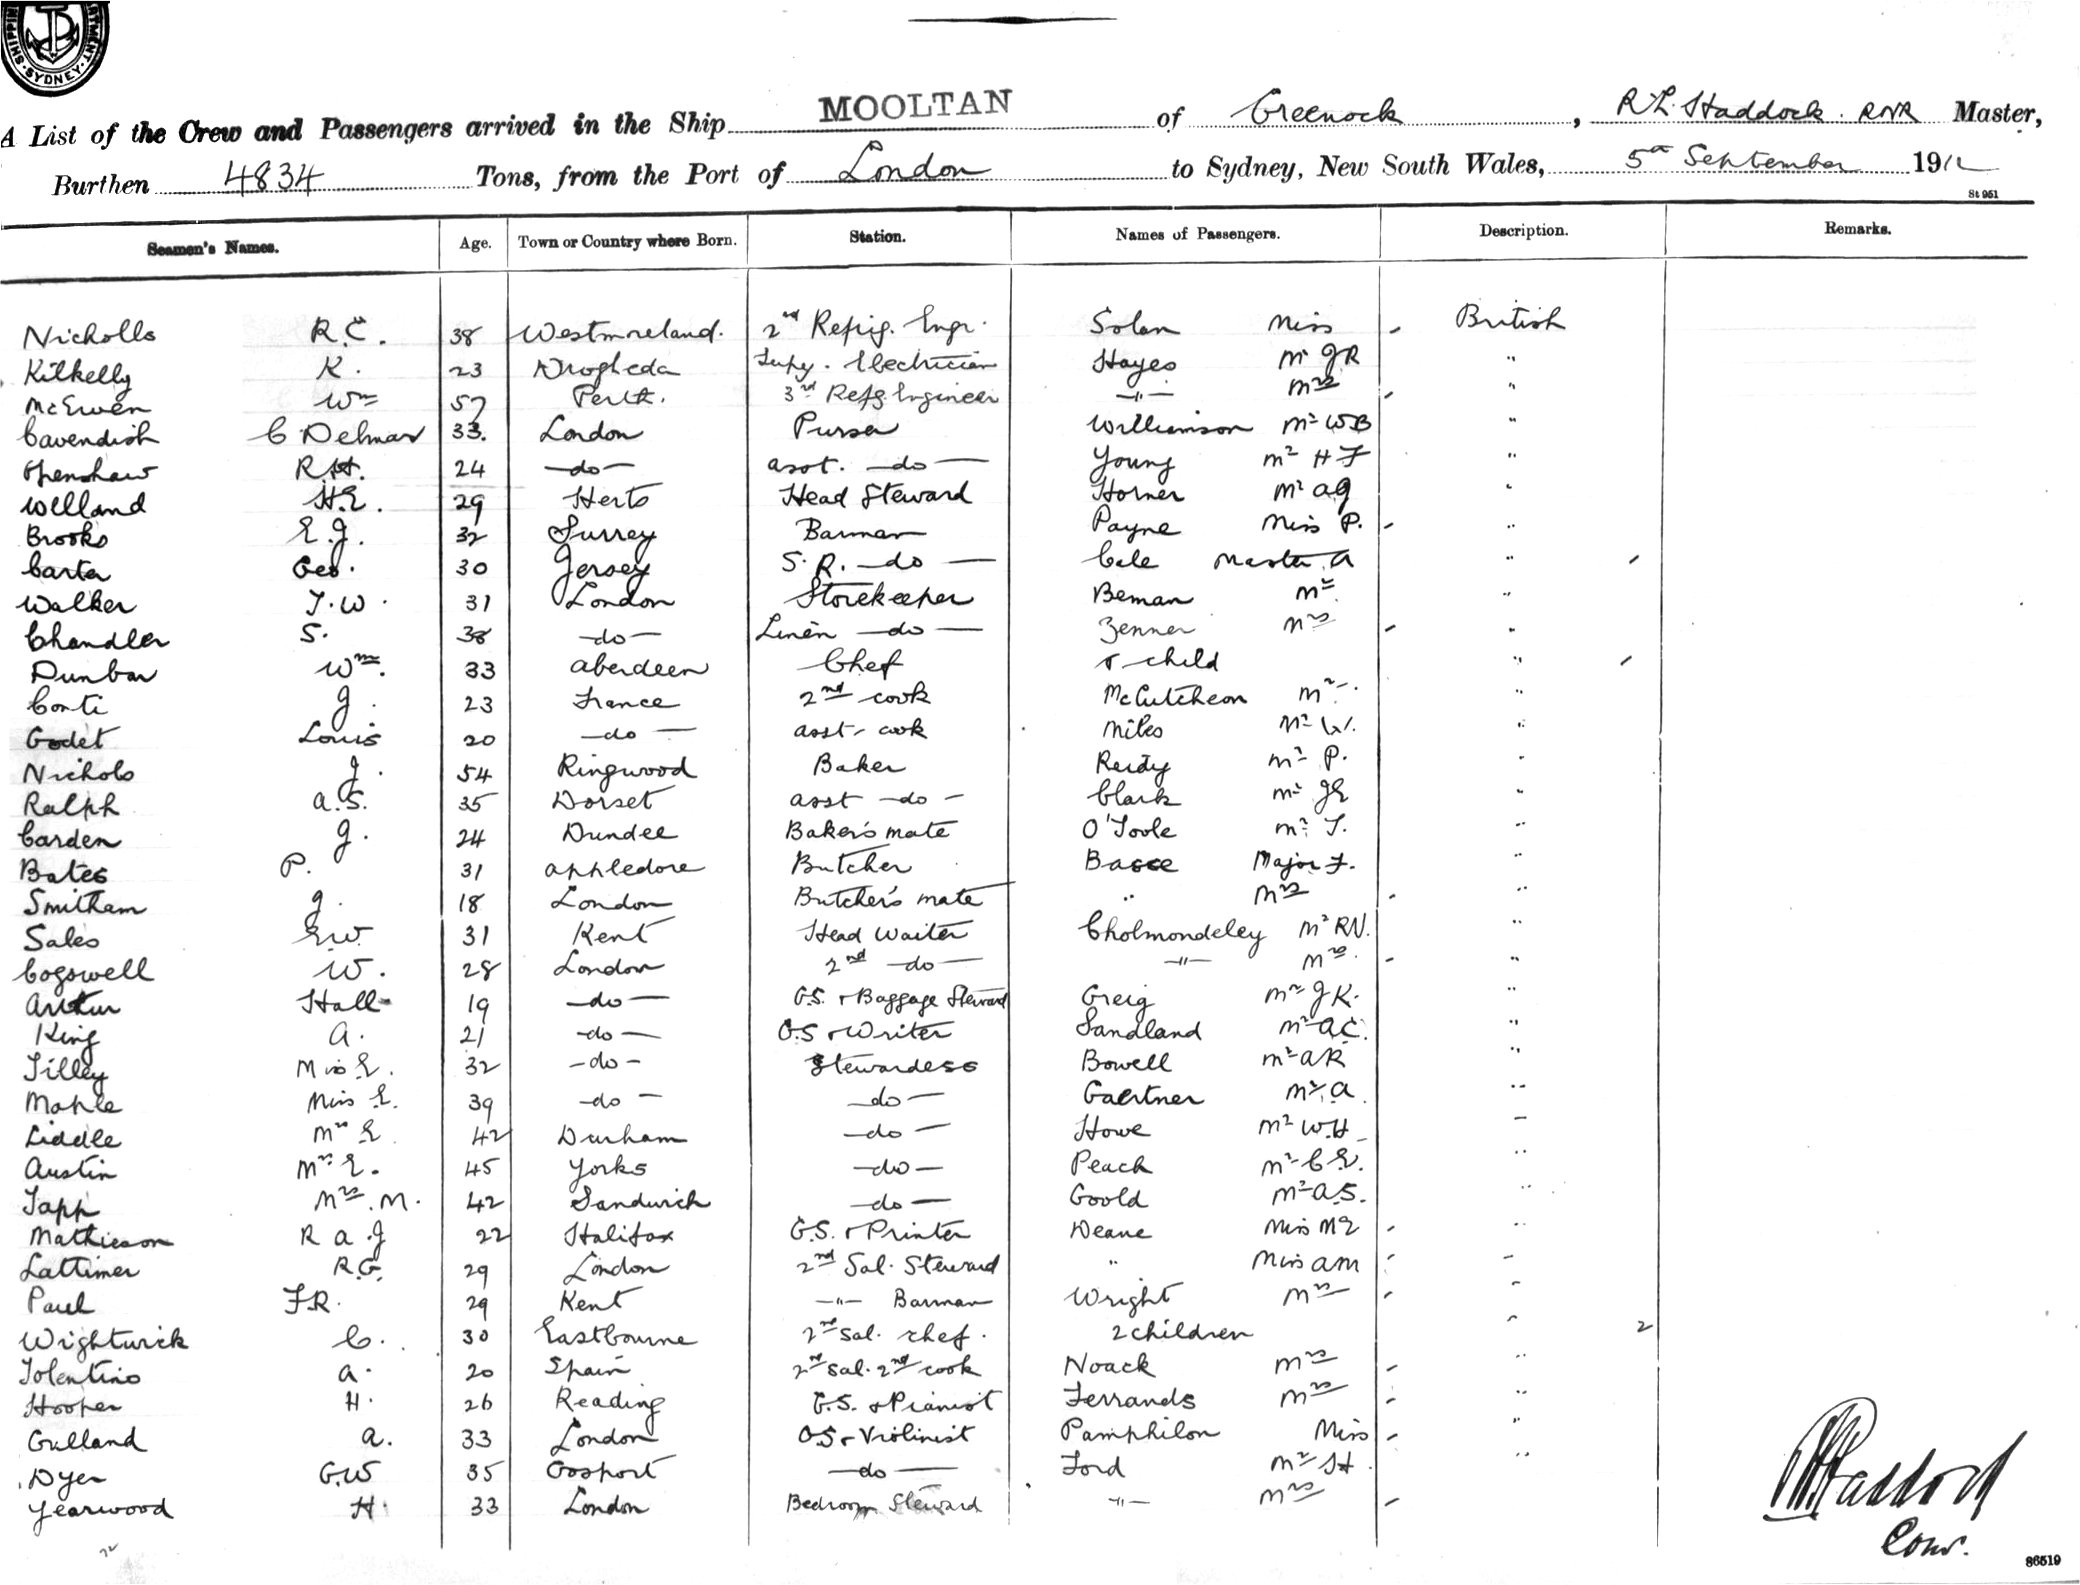 SHIPPIN MENT SYDNEY
A List of the Crew and Passengers arrived in the Ship MOOLTAN of Greenock, R L Haddock. RNR Master,
Burthen 4834 Tons, from the Port of London to Sydney, New South Wales, 5th September 1912
St 951
Seamen's Names. Age. Town or Country where Born. Station. Names of Passengers. Description. Remarks.
Nicholls R.C. 38 Westmoreland. 2nd Refrig. Engr. Solan Miss British
Kilkelly K. 23 Drogheda Supy. Electrician Hayes Mr J R "
McEwen Wm 57 Perth. 3rd Refg Engineer —"— Mrs "
Cavendish C Delmar 33. London Purser Williamson Mr W B "
Openshaw R.H. 24 —do— asst. —do— Young Mr H F "
Welland H.E. 29 Herts Head Steward Horner Mr A G "
Brooks E.J. 32 Surrey Barman Payne Miss P. "
Carter Geo. 30 Jersey S.R. —do— Cale Master A "
Walker T.W. 31 London Storekeeper Beman Mr "
Chandler S. 38 —do— Linen —do— Zenner Mrs "
Dunbar Wm. 33 Aberdeen Chef & child "
Conti J. 23 France 2nd cook McCutcheon Mr "
Godet Louis 20 —do— asst. cook Miles Mr W. "
Nichols J. 54 Ringwood Baker Reidy Mr P. "
Ralph A.S. 35 Dorset asst —do— Clark Mr J E "
Carden J. 24 Dundee Baker's mate O'Toole Mr T. "
Bates P. 31 Appledore Butcher Basse Major F. "
Smitham J. 18 London Butcher's mate " Mrs "
Sales E.W. 31 Kent Head Waiter Cholmondeley Mr R N. "
Cogswell W. 28 London 2nd —do— —"— Mrs "
Arthur Hall 19 —do— G.S. & Baggage Steward Greig Mr J K. "
King A. 21 —do— G.S & Writer Sandland Mr A C. "
Tilley Miss E. 32 —do— Stewardess Bowell Mr A R "
Maple Miss E. 39 —do— —do— Gaertner Mr A "
Liddle Mrs E 42 Durham —do— Howe Mr W.H "
Austin Mrs E. 45 Yorks —do— Peach Mr C E. "
Tapp Mrs. M. 42 Sandwich —do— Goold Mr A S. "
Mathieson R A J 22 Halifax G.S. & Printer Deane Miss M E "
Lattimer R.G. 29 London 2nd Sal. Steward " Miss A M "
Paul F.R. 29 Kent —"— Barman Wright Mrs "
Wightwick C. 30 Eastbourne 2nd Sal. Chef. 2 children " 2
Tolentino A. 20 Spain 2nd Sal. 2nd cook Noack Mrs "
Hooper H. 26 Reading G.S. & Pianist Ferrands Mrs "
Gulland A. 33 London G.S & Violinist Pamphilon Miss "
Dyer G.W 35 Gosport —do— Ford Mr H "
Yearwood H. 33 London Bedroom Steward —"— Mrs
R L Haddock
Comr.
86519